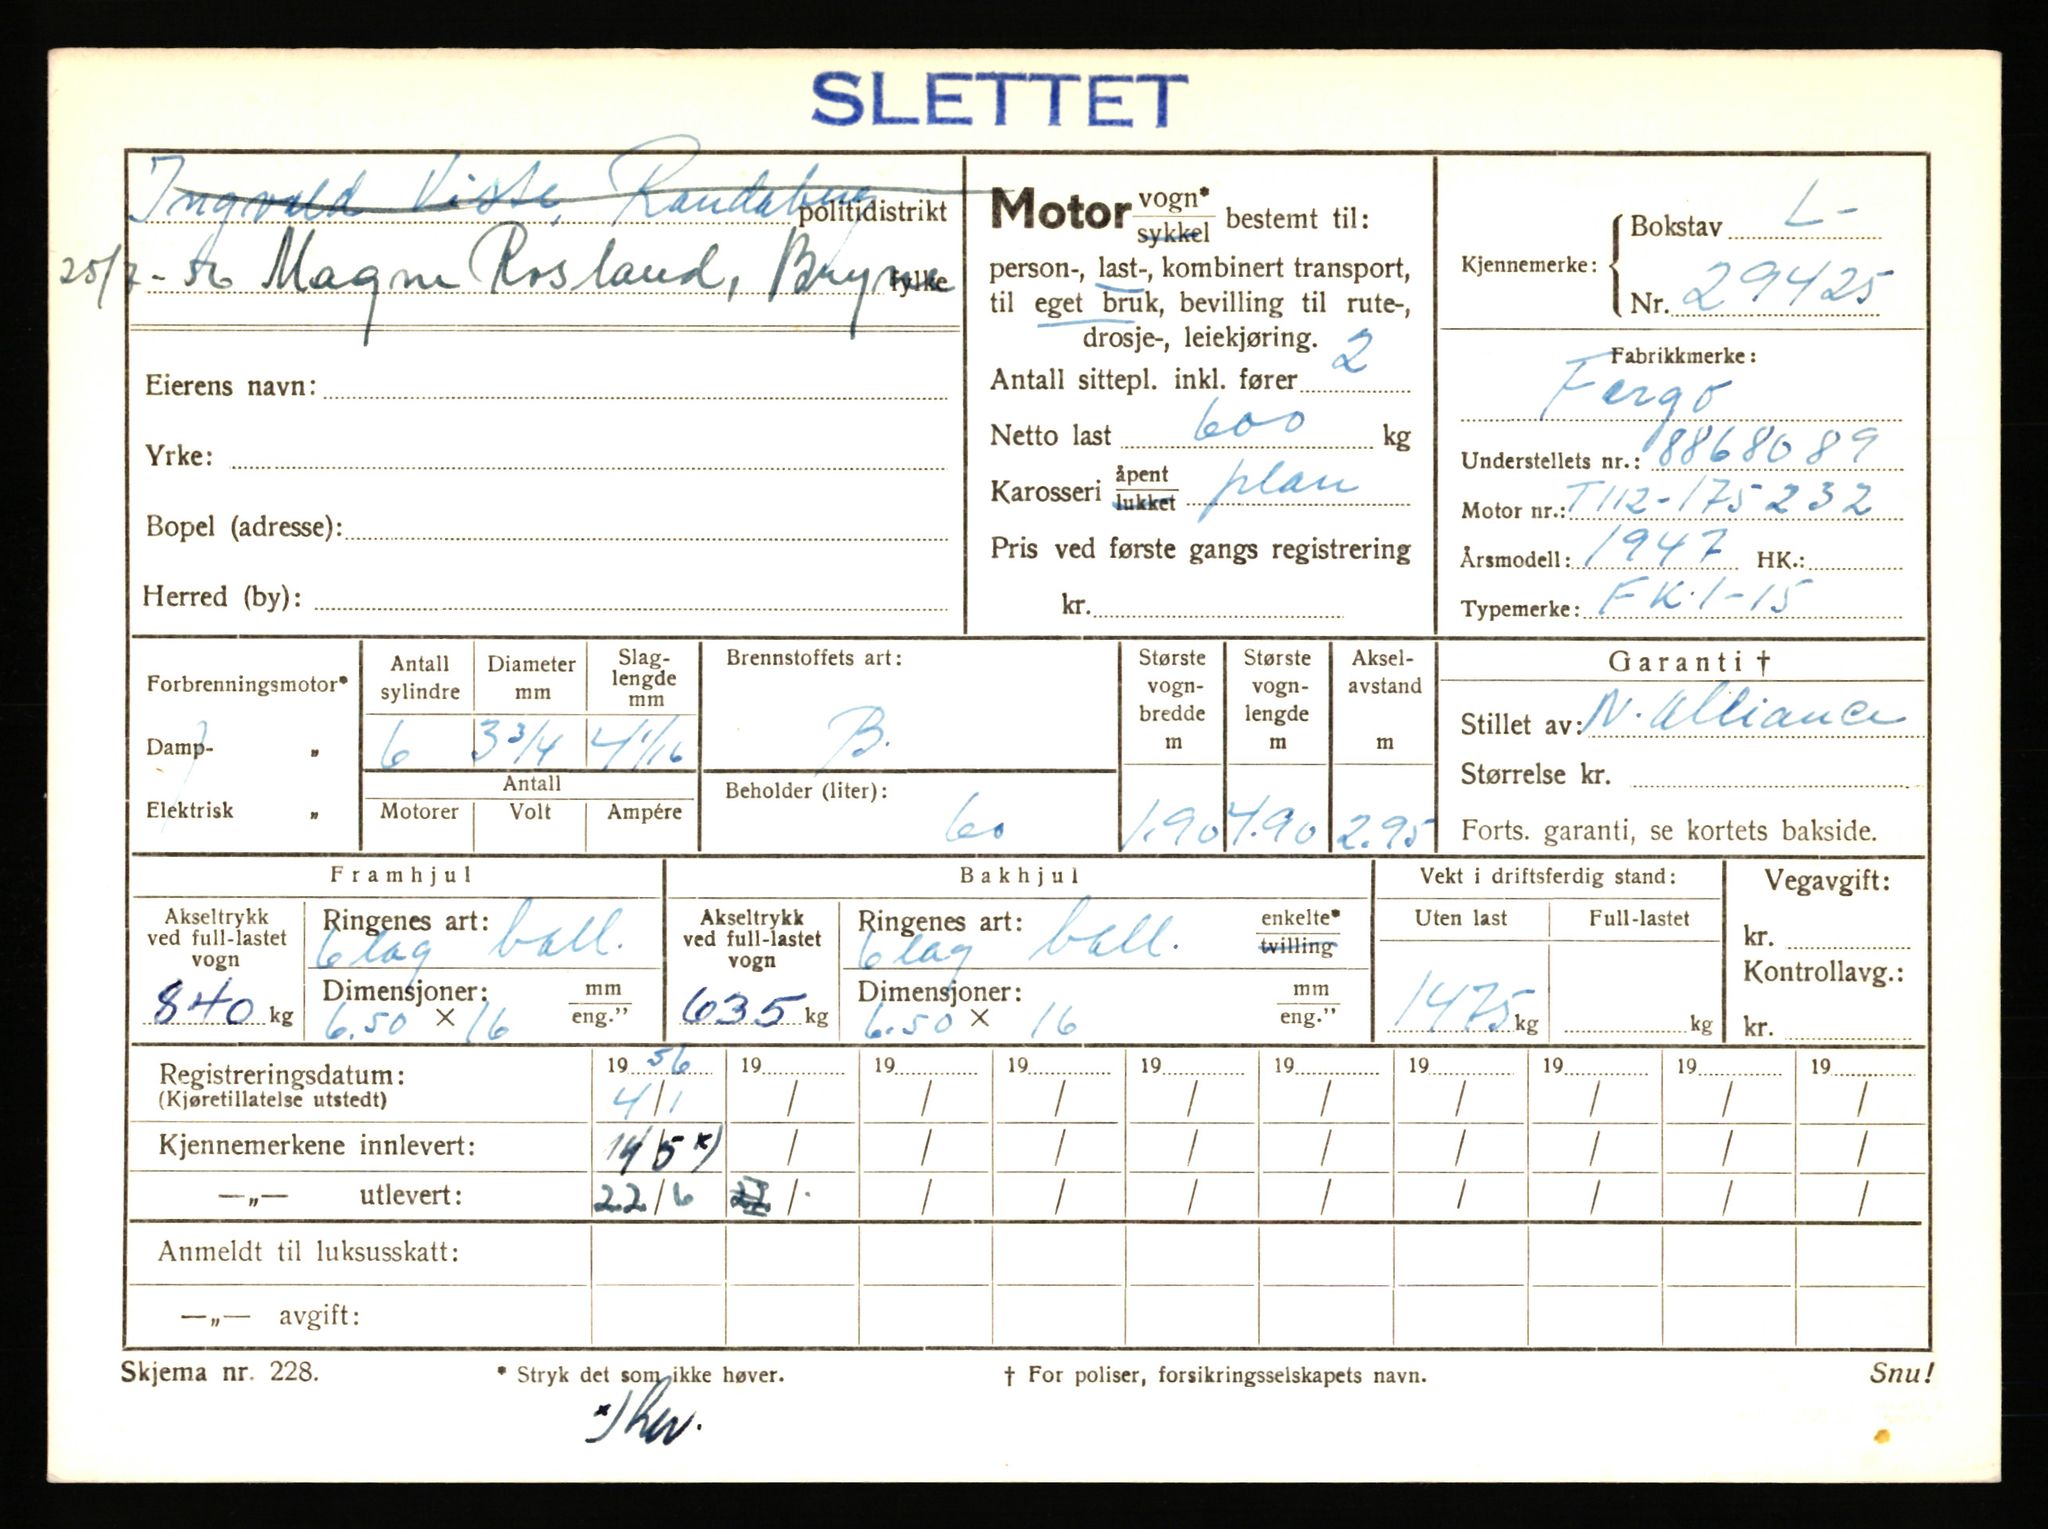 SLETTET
Ingvald Viste, Randaberg politidistrikt
25/7-56 Magne Rosland, Bryne fylke
Eierens navn:
Yrke:
Bopel (adresse):
Herred (by):
Motor vogn* sykkel bestemt til:
person-, last-, kombinert transport,
til eget bruk, bevilling til rute-,
drosje-, leiekjøring.
Antall sittepl. inkl. fører 2
Netto last 600 kg
Karosseri åpent lukket plan
Pris ved første gangs registrering
kr.
Kjennemerke: Bokstav L-
Nr. 29425
Fabrikkmerke:
Fargo
Understellets nr.: 8868089
Motor nr.: T112-175232
Årsmodell: 1947 HK.:
Typemerke: FK.1-15
Forbrenningsmotor*
Damp- „
Elektrisk „
Antall sylindre Diameter mm Slag-lengde mm
6 3 3/4 4 1/16
Antall
Motorer Volt Ampére
Brennstoffets art:
B.
Beholder (liter):
60
Største vogn-bredde m Største vogn-lengde m Aksel-avstand m
1.90 4.90 2.95
Garanti †
Stillet av: N. Alliance
Størrelse kr.
Forts. garanti, se kortets bakside.
Framhjul
Akseltrykk ved full-lastet vogn
840 kg
Ringenes art:
6 lag ball.
Dimensjoner: mm eng."
6.50 × 16
Bakhjul
Akseltrykk ved full-lastet vogn
635 kg
Ringenes art: enkelte* tvilling
6 lag ball.
Dimensjoner: mm eng."
6.50 × 16
Vekt i driftsferdig stand:
Uten last Full-lastet
1475 kg kg
Vegavgift:
kr.
Kontrollavg.:
kr.
Registreringsdatum: 1956 19 19 19 19 19 19 19 19 19
(Kjøretillatelse utstedt) 4/1 / / / / / / / / /
Kjennemerkene innlevert: 14/5 *) / / / / / / / / /
—„— utlevert: 22/6 / / / / / / / / /
Anmeldt til luksusskatt:
—„— avgift:
Skjema nr. 228. * Stryk det som ikke høver. † For poliser, forsikringsselskapets navn. Snu!